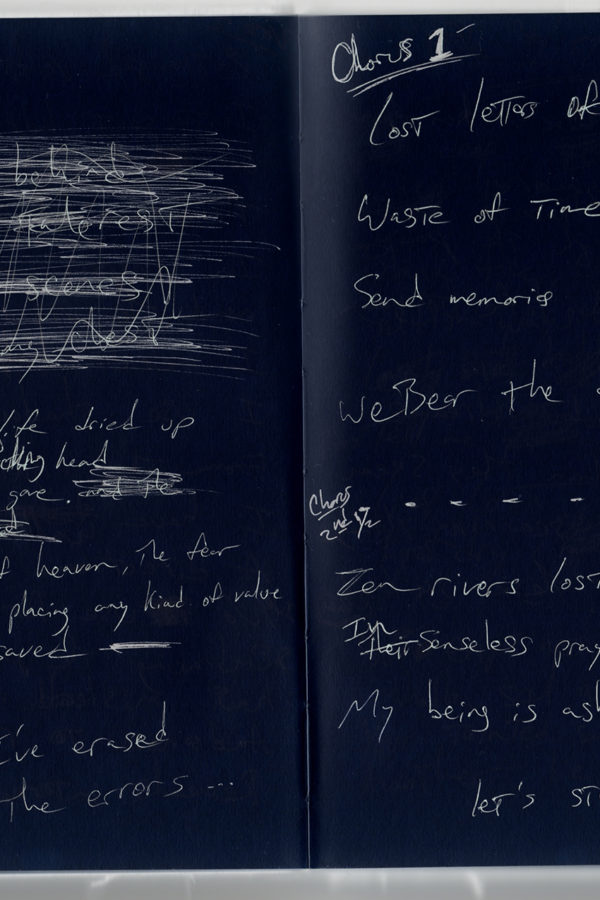 behind
interest
scenes
my desk
life dried up
head
gone. and the
of heaven, The fear
placing any kind of value
saved
I've erased
The errors ...
Chorus 1
Lost letters of
Waste of Time
Send memories
we Bear the
Chorus
2nd 1/2
Zen rivers lost
In
their Senseless pray
My being is ask
let's st